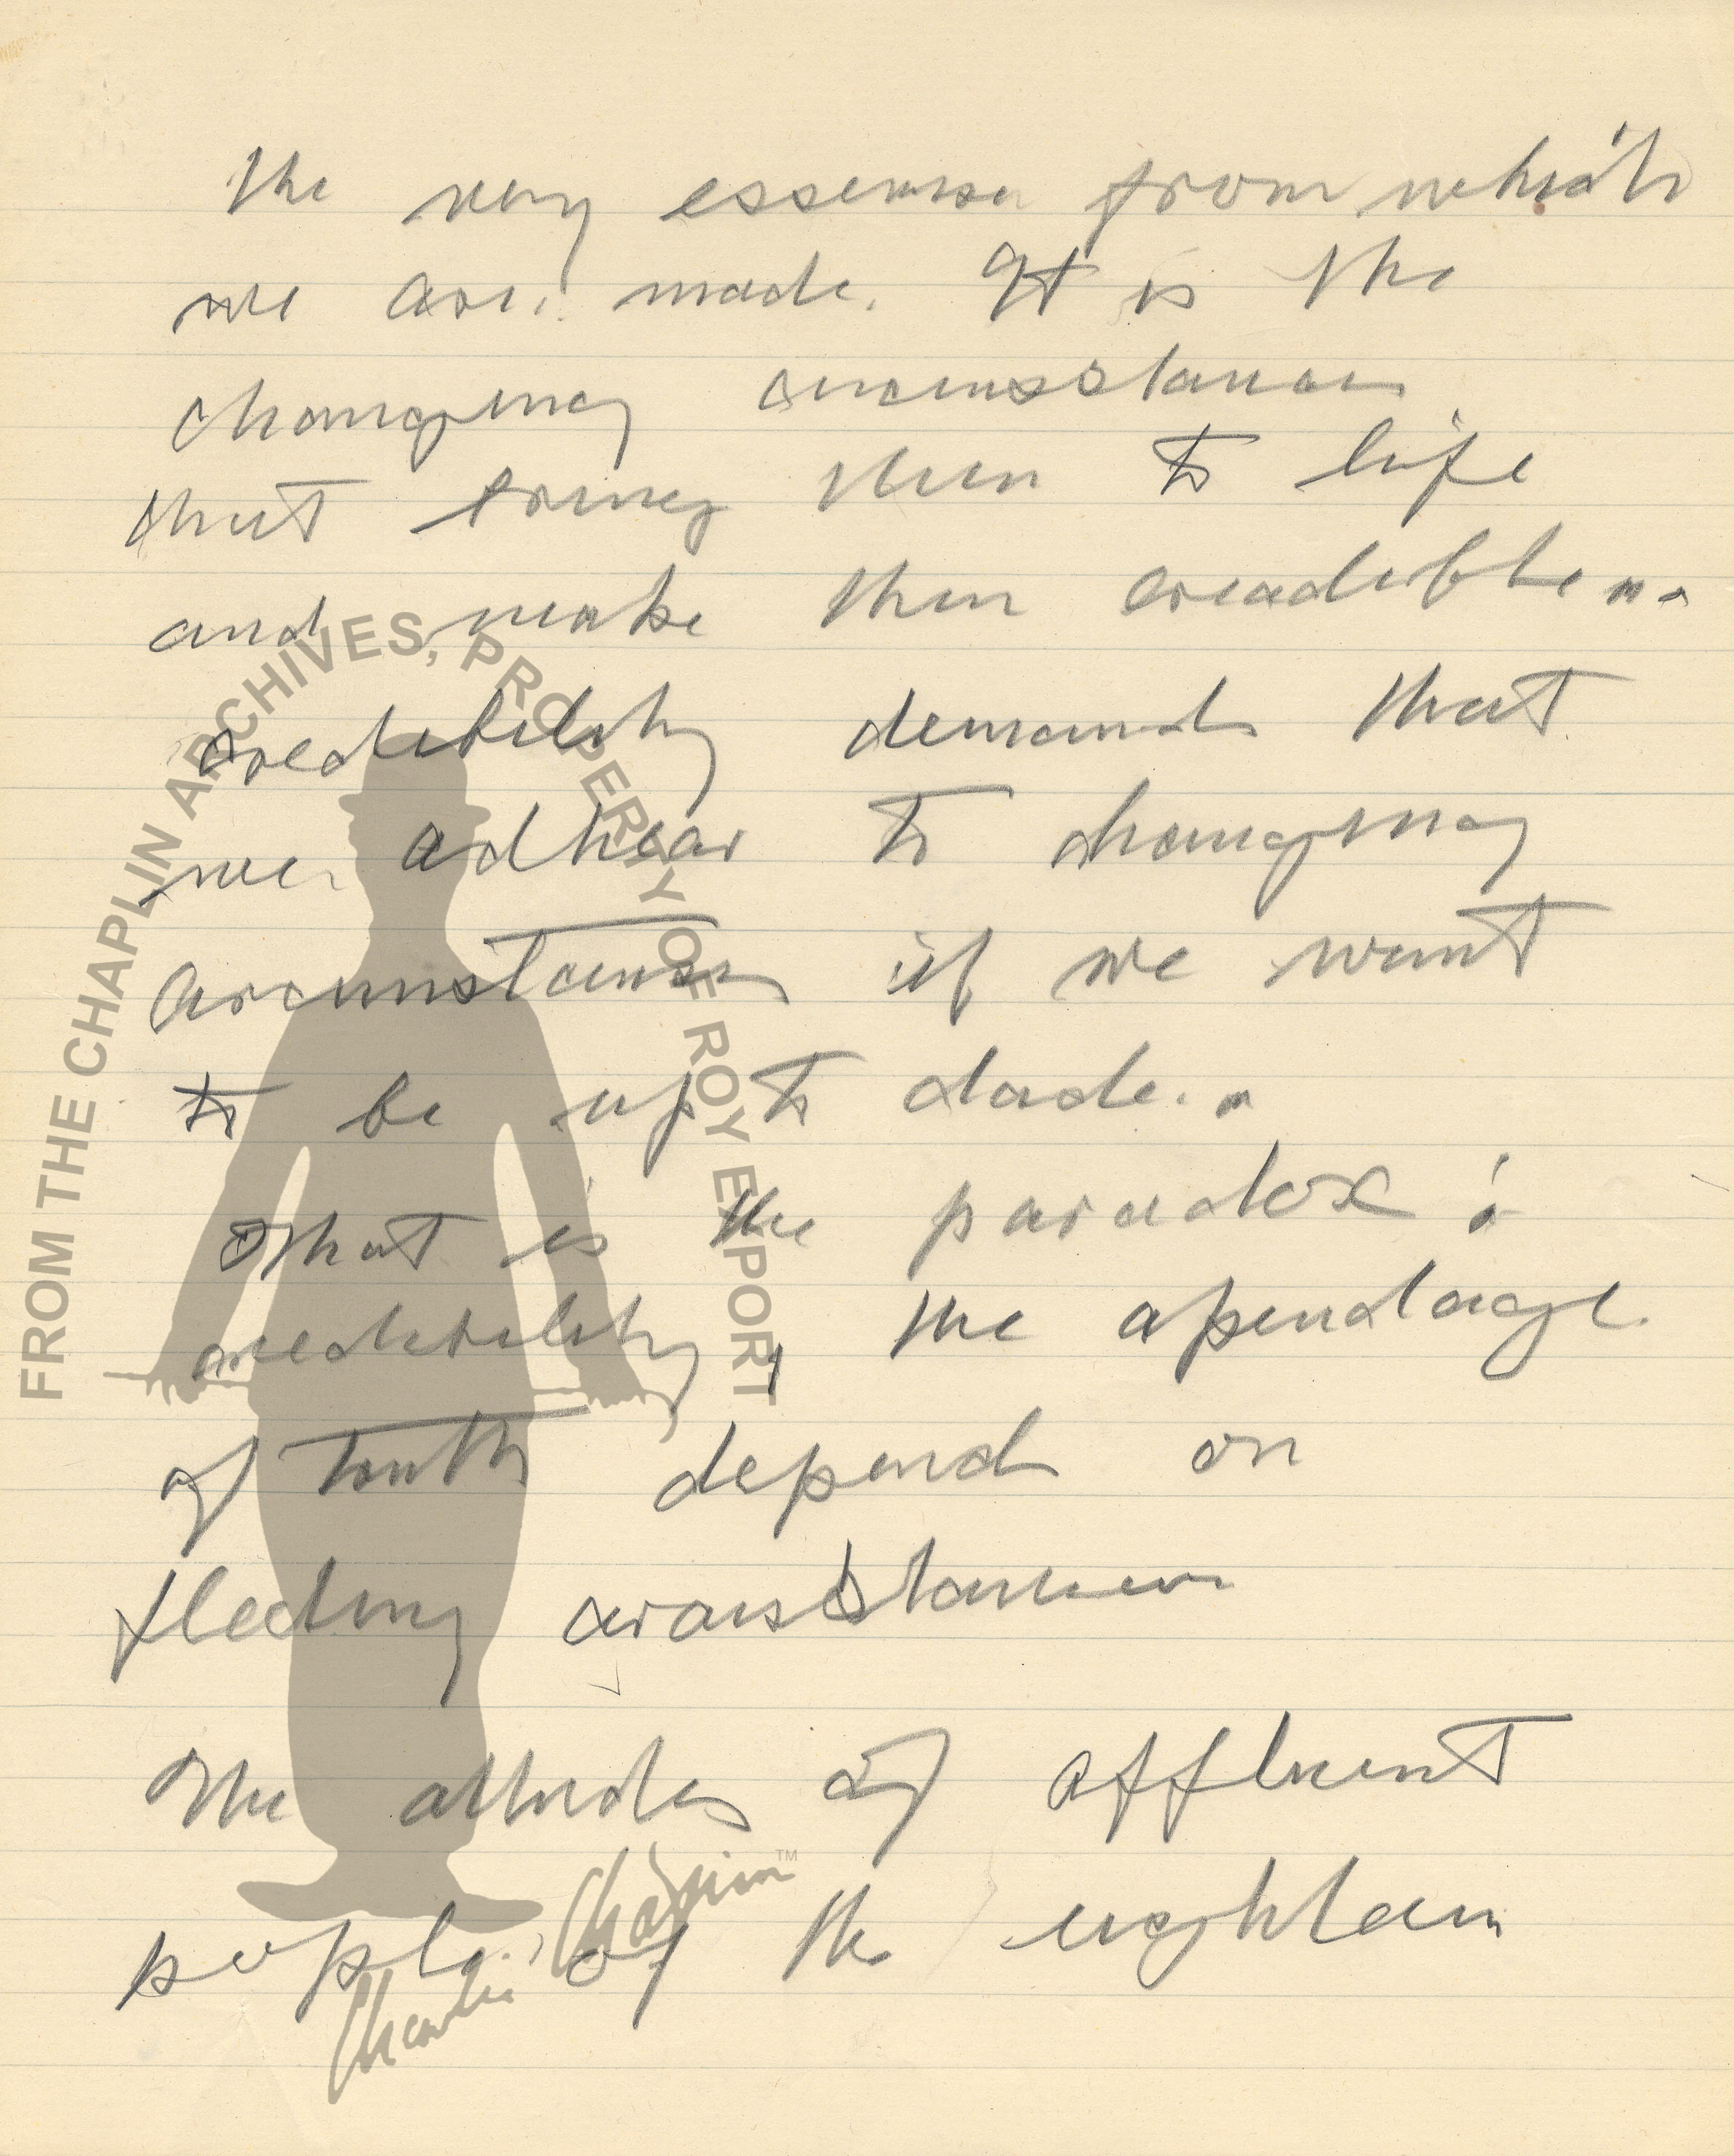 the very essense from which
we are made. It is the
changing circumstances
that bring then to life
and make then creadible...
credibility demands that
we adhear to changing
circumstances if we want
to be up to dade..
That is the paradox:
credibility, the apendage
of truth depends on
fleeting
The attitudes of affluent
people of the eighteen
FROM THE CHAPLIN ARCHIVES, PROPERTY OF ROY EXPORT
Charlie Chaplin™